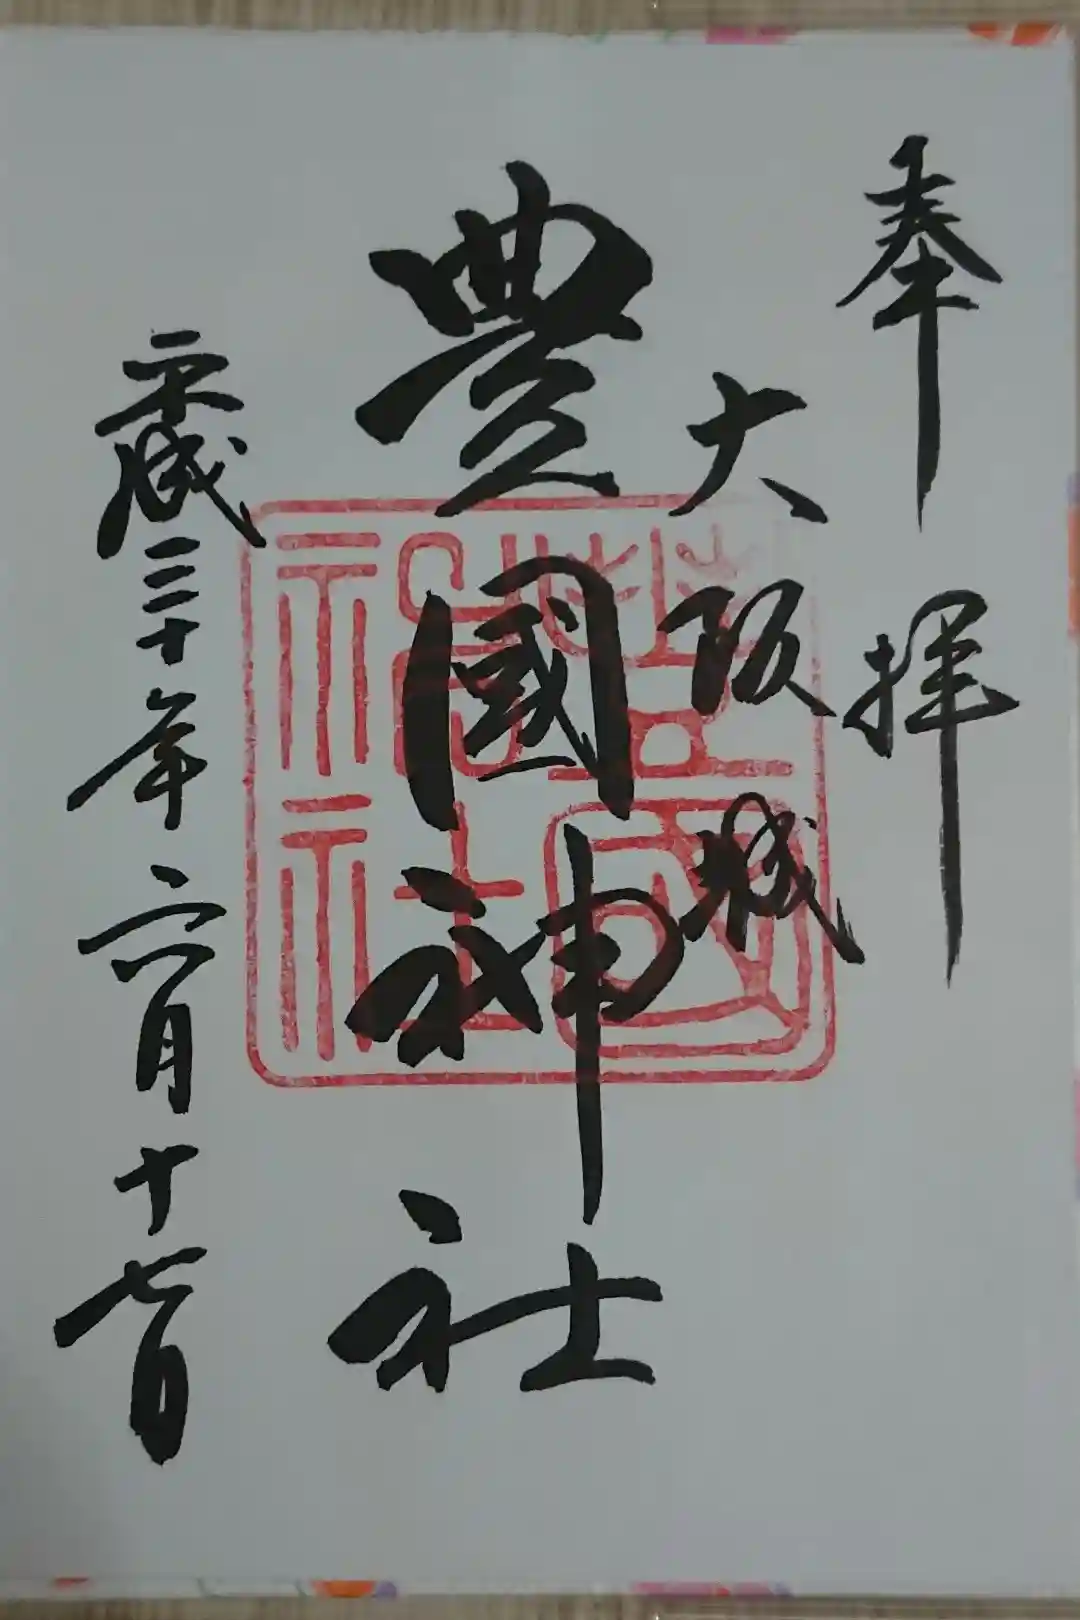 奉拝
大阪城
豊國神社
平成三十年六月十七日
豊國神社